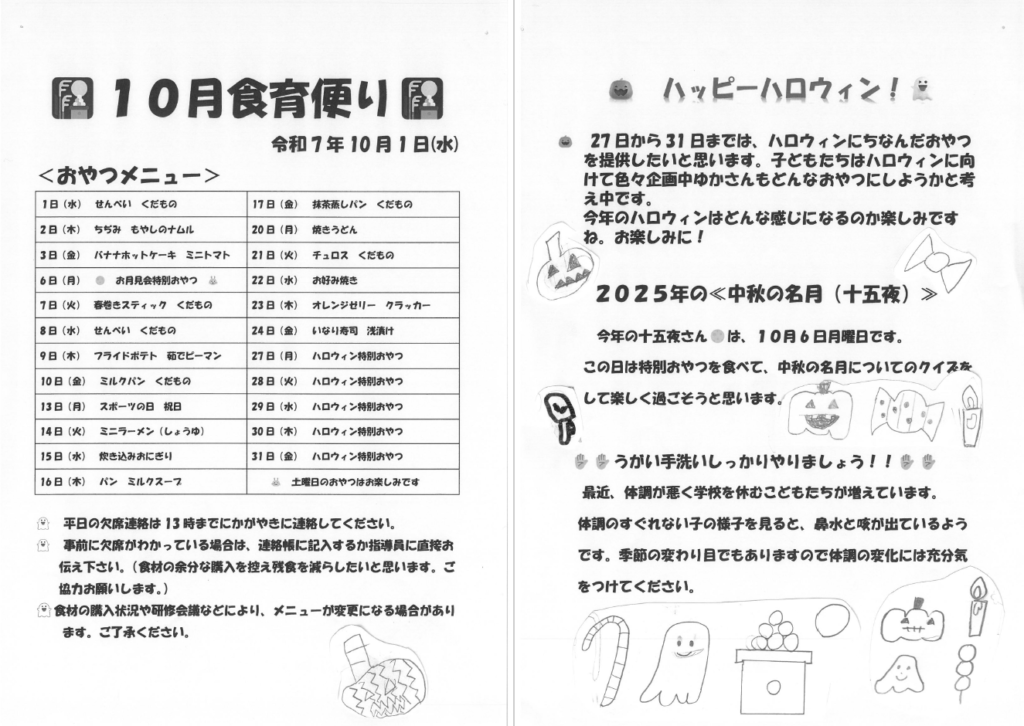 10月食育便り
令和7年10月1日(水)
＜おやつメニュー＞
1日（水） せんべい くだもの
2日（木） ちぢみ もやしのナムル
3日（金） バナナホットケーキ ミニトマト
6日（月） お月見会特別おやつ
7日（火） 春巻きスティック くだもの
8日（水） せんべい くだもの
9日（木） フライドポテト 茹でピーマン
10日（金） ミルクパン くだもの
13日（月） スポーツの日 祝日
14日（火） ミニラーメン（しょうゆ）
15日（水） 炊き込みおにぎり
16日（木） パン ミルクスープ
17日（金） 抹茶蒸しパン くだもの
20日（月） 焼きうどん
21日（火） チュロス くだもの
22日（水） お好み焼き
23日（木） オレンジゼリー クラッカー
24日（金） いなり寿司 浅漬け
27日（月） ハロウィン特別おやつ
28日（火） ハロウィン特別おやつ
29日（水） ハロウィン特別おやつ
30日（木） ハロウィン特別おやつ
31日（金） ハロウィン特別おやつ
土曜日のおやつはお楽しみです
平日の欠席連絡は13時までにかがやきに連絡してください。
事前に欠席がわかっている場合は、連絡帳に記入するか指導員に直接お
伝え下さい。（食材の余分な購入を控え残食を減らしたいと思います。ご
協力お願いします。）
食材の購入状況や研修会議などにより、メニューが変更になる場合があり
ます。ご了承ください。
ハッピーハロウィン！
27日から31日までは、ハロウィンにちなんだおやつ
を提供したいと思います。子どもたちはハロウィンに向
けて色々企画中ゆかさんもどんなおやつにしようかと考
え中です。
今年のハロウィンはどんな感じになるのか楽しみです
ね。お楽しみに！
2025年の≪中秋の名月（十五夜）≫
今年の十五夜さんは、10月6日月曜日です。
この日は特別おやつを食べて、中秋の名月についてのクイズを
して楽しく過ごそうと思います。
うがい手洗いしっかりやりましょう！！
最近、体調が悪く学校を休むこどもたちが増えています。
体調のすぐれない子の様子を見ると、鼻水と咳が出ているよう
です。季節の変わり目でもありますので体調の変化には充分気
をつけてください。